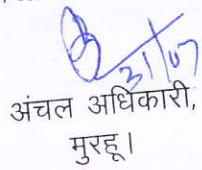 31/07
अंचल अधिकारी,
मुरहू।